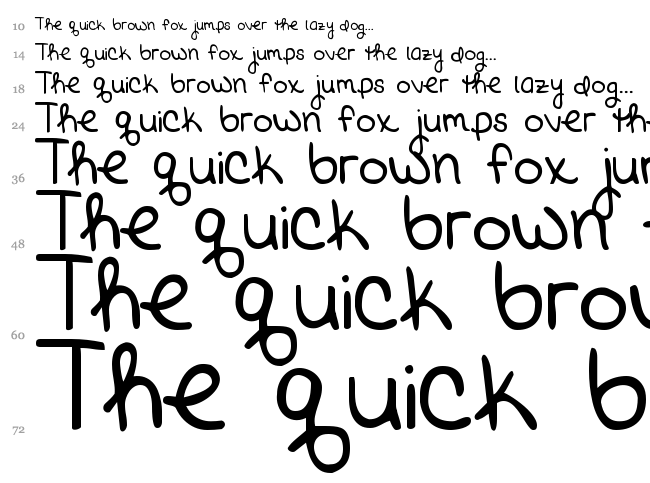 10 The quick brown fox jumps over the lazy dog...
14 The quick brown fox jumps over the lazy dog...
18 The quick brown fox jumps over the lazy dog...
24 The quick brown fox jumps over th
36 The quick brown fox jun
48 The quick brown
60 The quick brou
72 The quick b